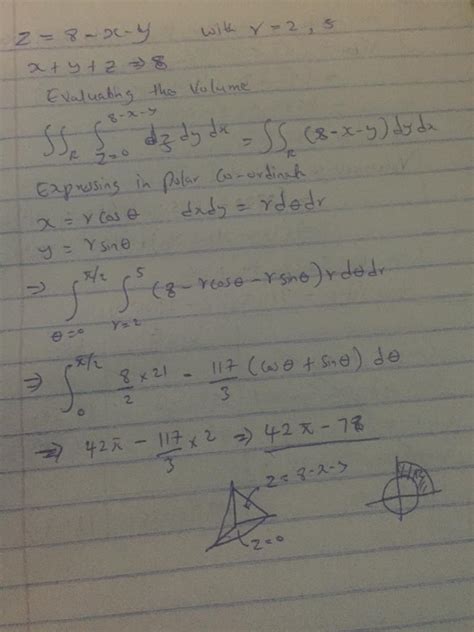 z = 8 - x - y with r = 2, 5
x + y + z ⇒ 8
Evaluating the Volume
∬_R ∫_{z=0}^{8-x-y} dz dy dx = ∬_R (8 - x - y) dy dx
Expressing in Polar Co-ordinate
x = r cos θ dx dy = r dθ dr
y = r sin θ
⇒ ∫_{θ=0}^{π/2} ∫_{r=2}^{5} (8 - r cos θ - r sin θ) r dθ dr
⇒ ∫_0^{π/2} 8/2 × 21 - 117/3 (cos θ + sin θ) dθ
⇒ 42π - 117/3 × 2 ⇒ 42π - 78
z = 8 - x - y
z = 0